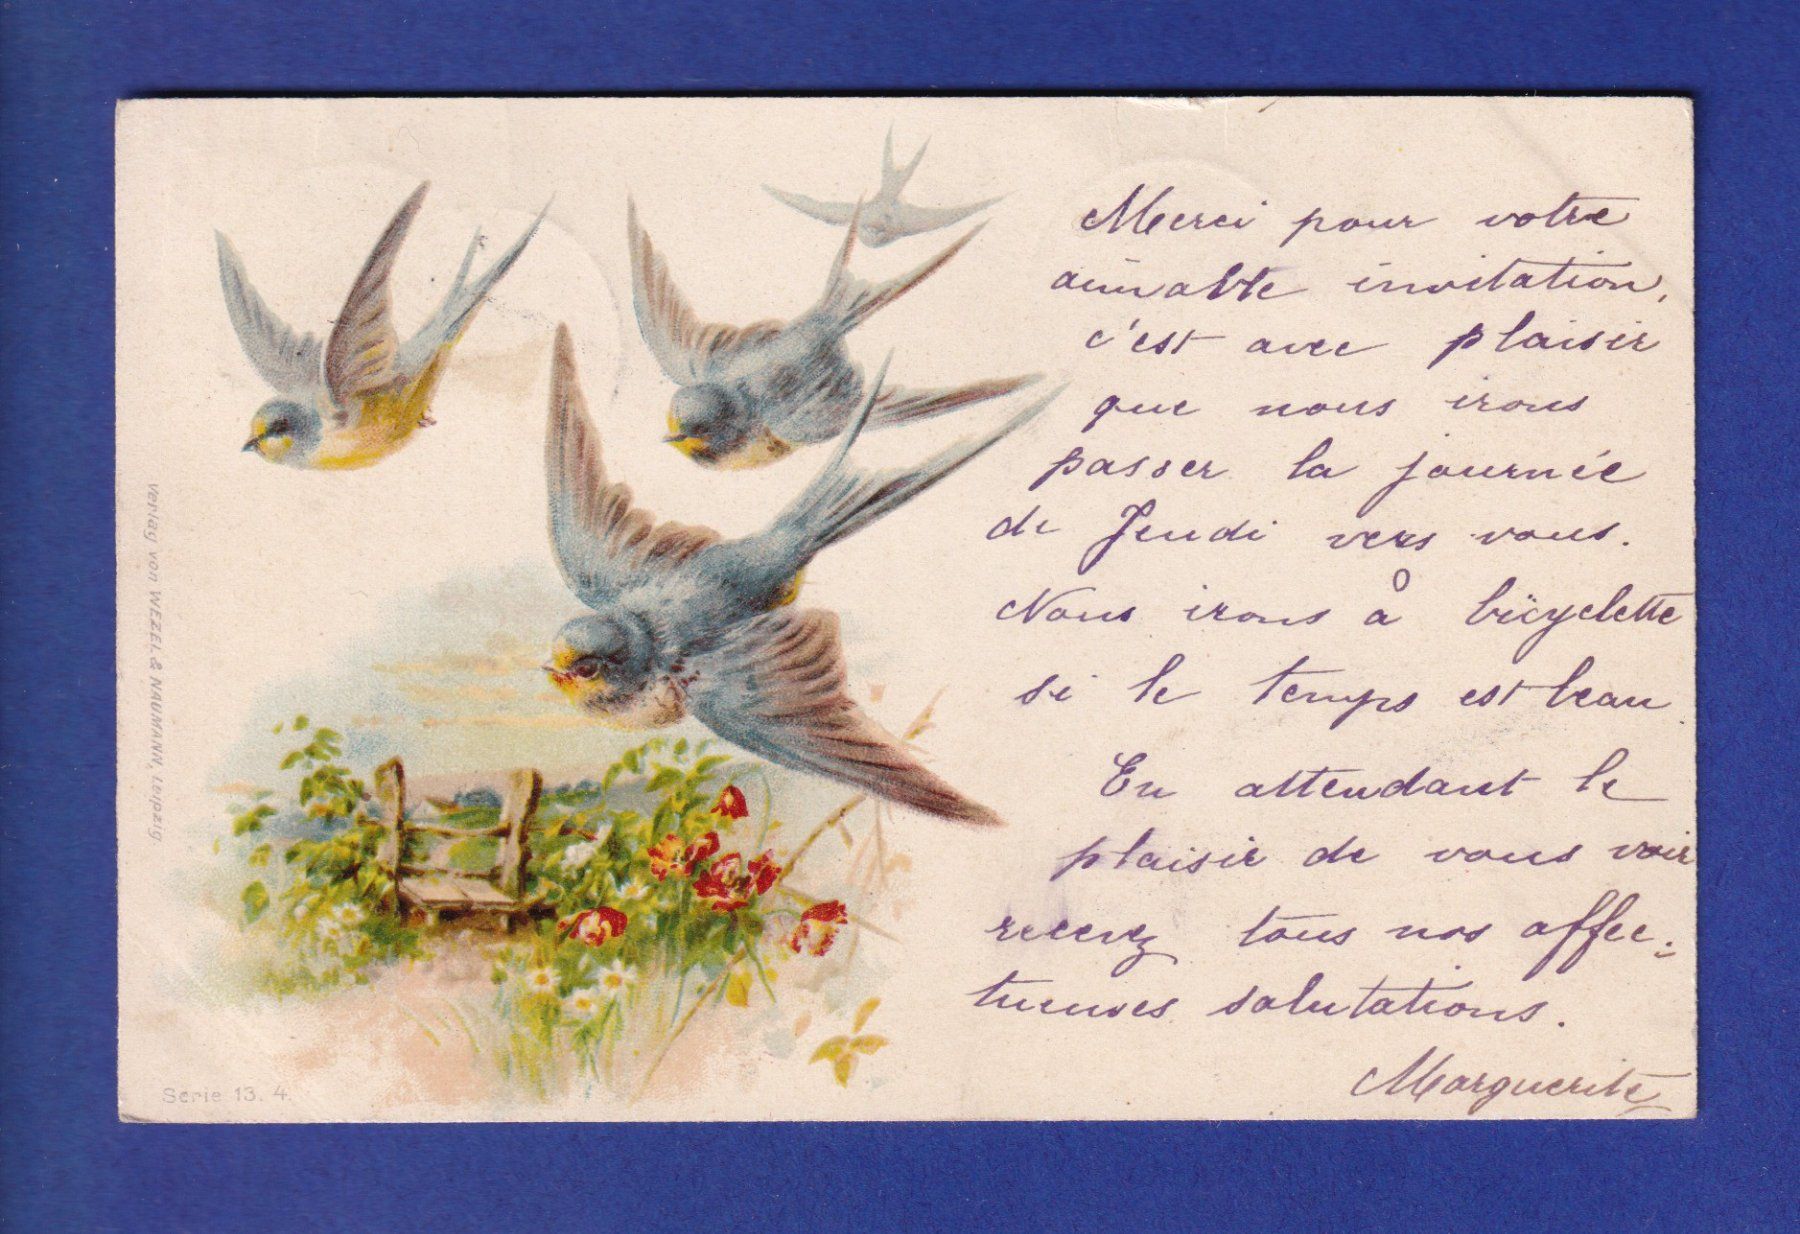 Merci pour votre
aimable invitation,
c'est avec plaisir
que nous irons
passer la journée
de Jeudi vers vous.
Nous irons à bicyclette
si le temps est beau.
En attendant le
plaisir de vous voir
recevez tous nos affec-
tueuses salutations.
Marguerite
Verlag von WEZEL & NAUMANN, Leipzig
Serie 13. 4.